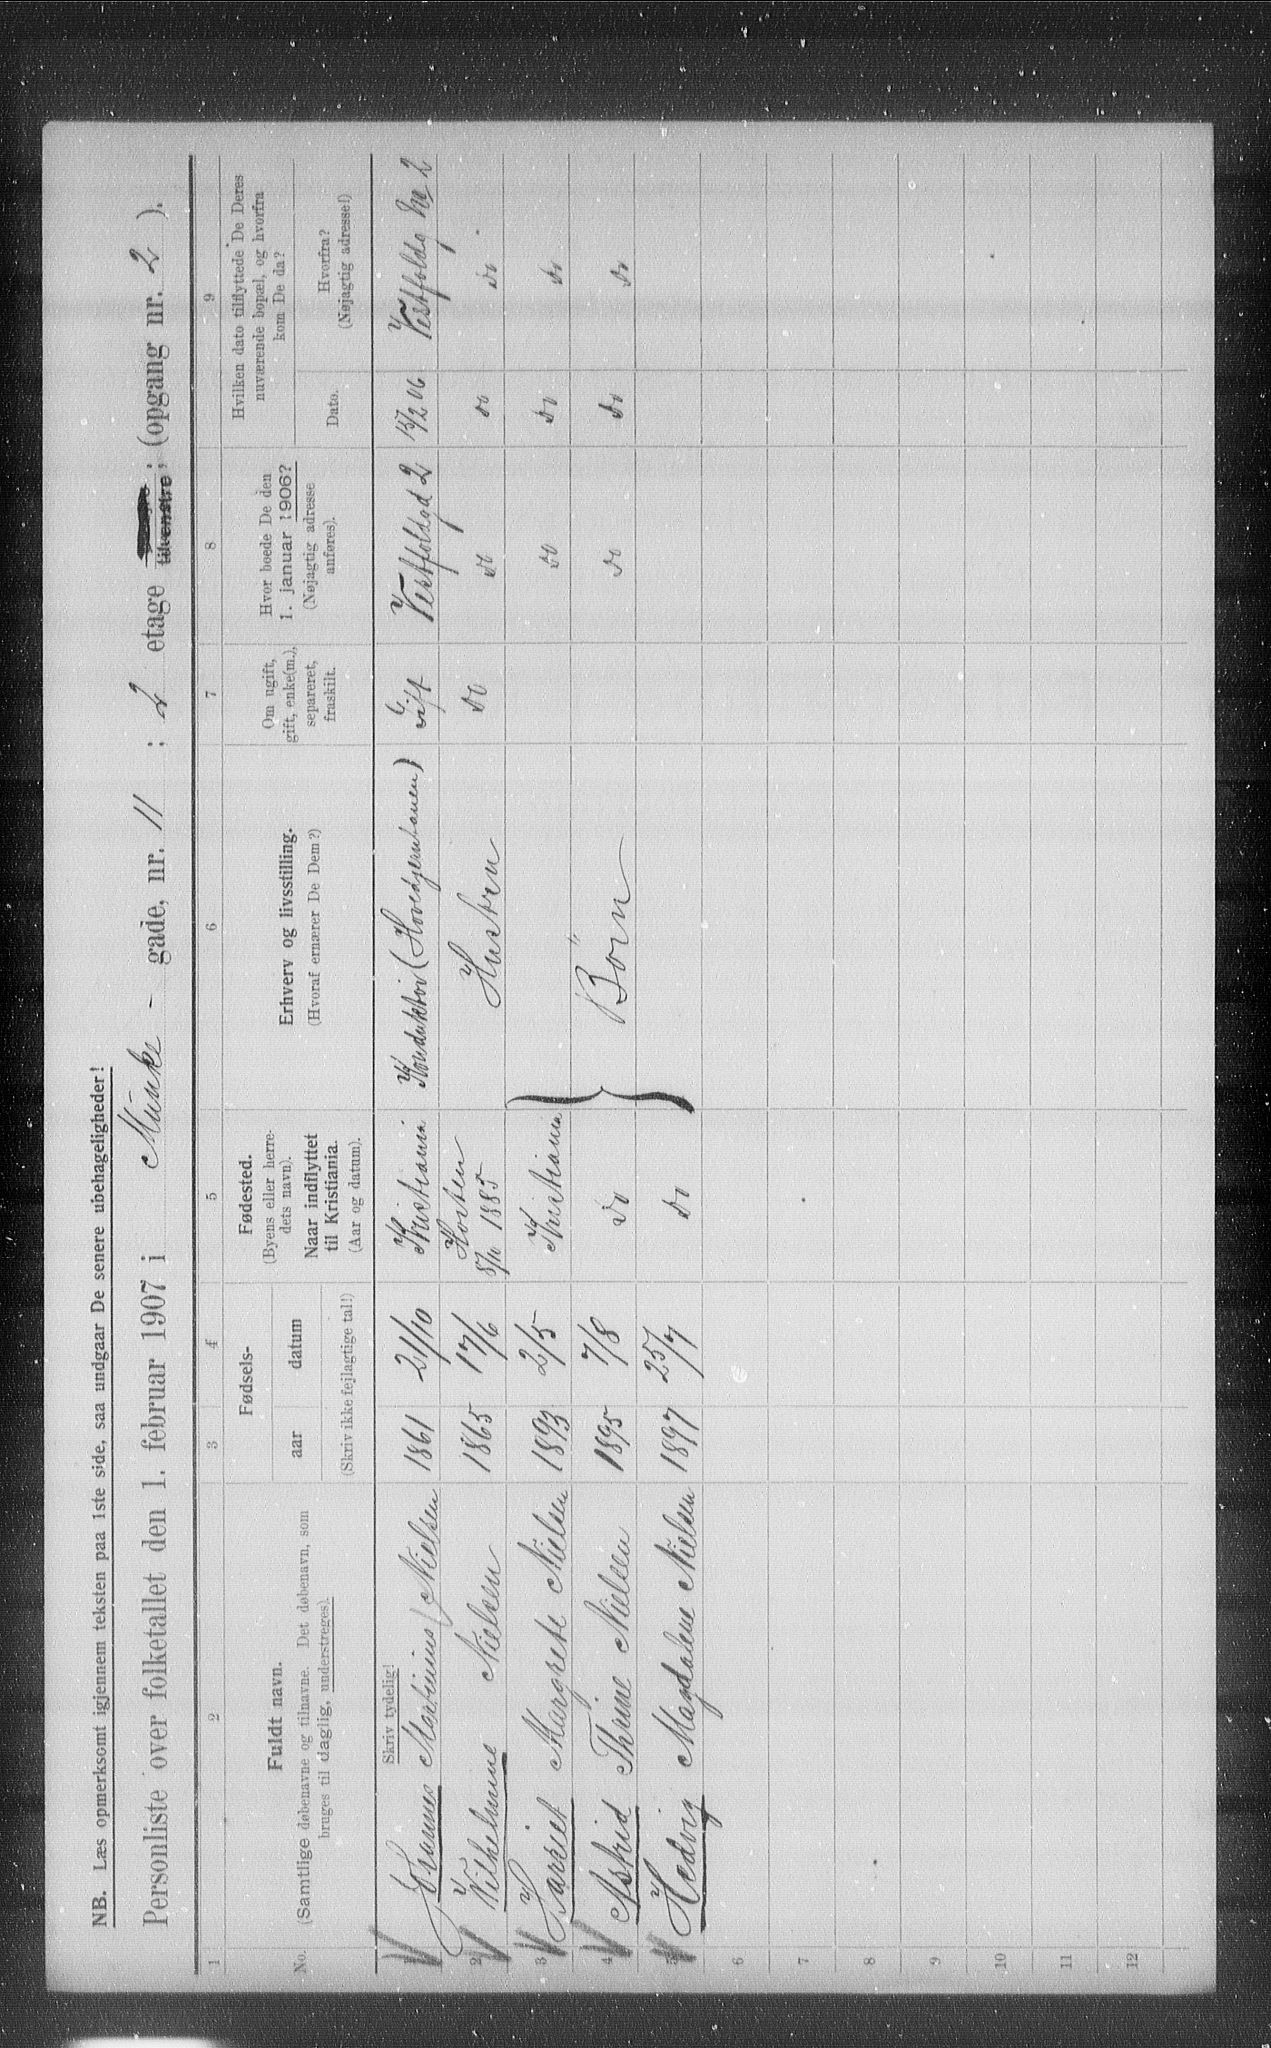 NB. Læs opmerksomt igjennem teksten paa 1ste side, saa undgaar De senere ubehageligheder!
Personliste over folketallet den 1. februar 1907 i Munke - gade, nr. 11 ; 2 etage tilvenstre; (opgang nr. 2 ).
1 2 3 4 5 6 7 8 9
No.
Fuldt navn.
(Samtlige døbenavne og tilnavne. Det døbenavn, som
bruges til daglig, understreges).
Fødsels-
aar datum
(Skriv ikke fejlagtige tal!)
Fødested.
(Byens eller herre-
dets navn).
Naar indflyttet
til Kristiania.
(Aar og datum).
Erhverv og livsstilling.
(Hvoraf ernærer De Dem?)
Om ugift,
gift, enke(m.),
separeret,
fraskilt.
Hvor boede De den
1. januar 1906?
(Nøjagtig adresse
anføres).
Hvilken dato tilflyttede De Deres
nuværende bopæl, og hvorfra
kom De da?
Dato.
Hvorfra?
(Nøjagtig adresse!)
Skriv tydelig!
1 Johannes Martinius Nielsen 1861 21/10 Kristiania Konduktør (Hovedjernbanen) Gift Vestfoldgd 2 13/2 06 Vestfoldg No 2
2 Vilhelmine Nielsen 1865 17/6 Horten Hustru do do do do
8/11 1885
3 Harriet Margrete Nielsen 1893 2/5 Kristiania do do do
4 Astrid Thrine Nielsen 1895 7/8 do Börn do do do
5 Hedvig Magdalene Nielsen 1897 25/7 do
6
7
8
9
10
11
12